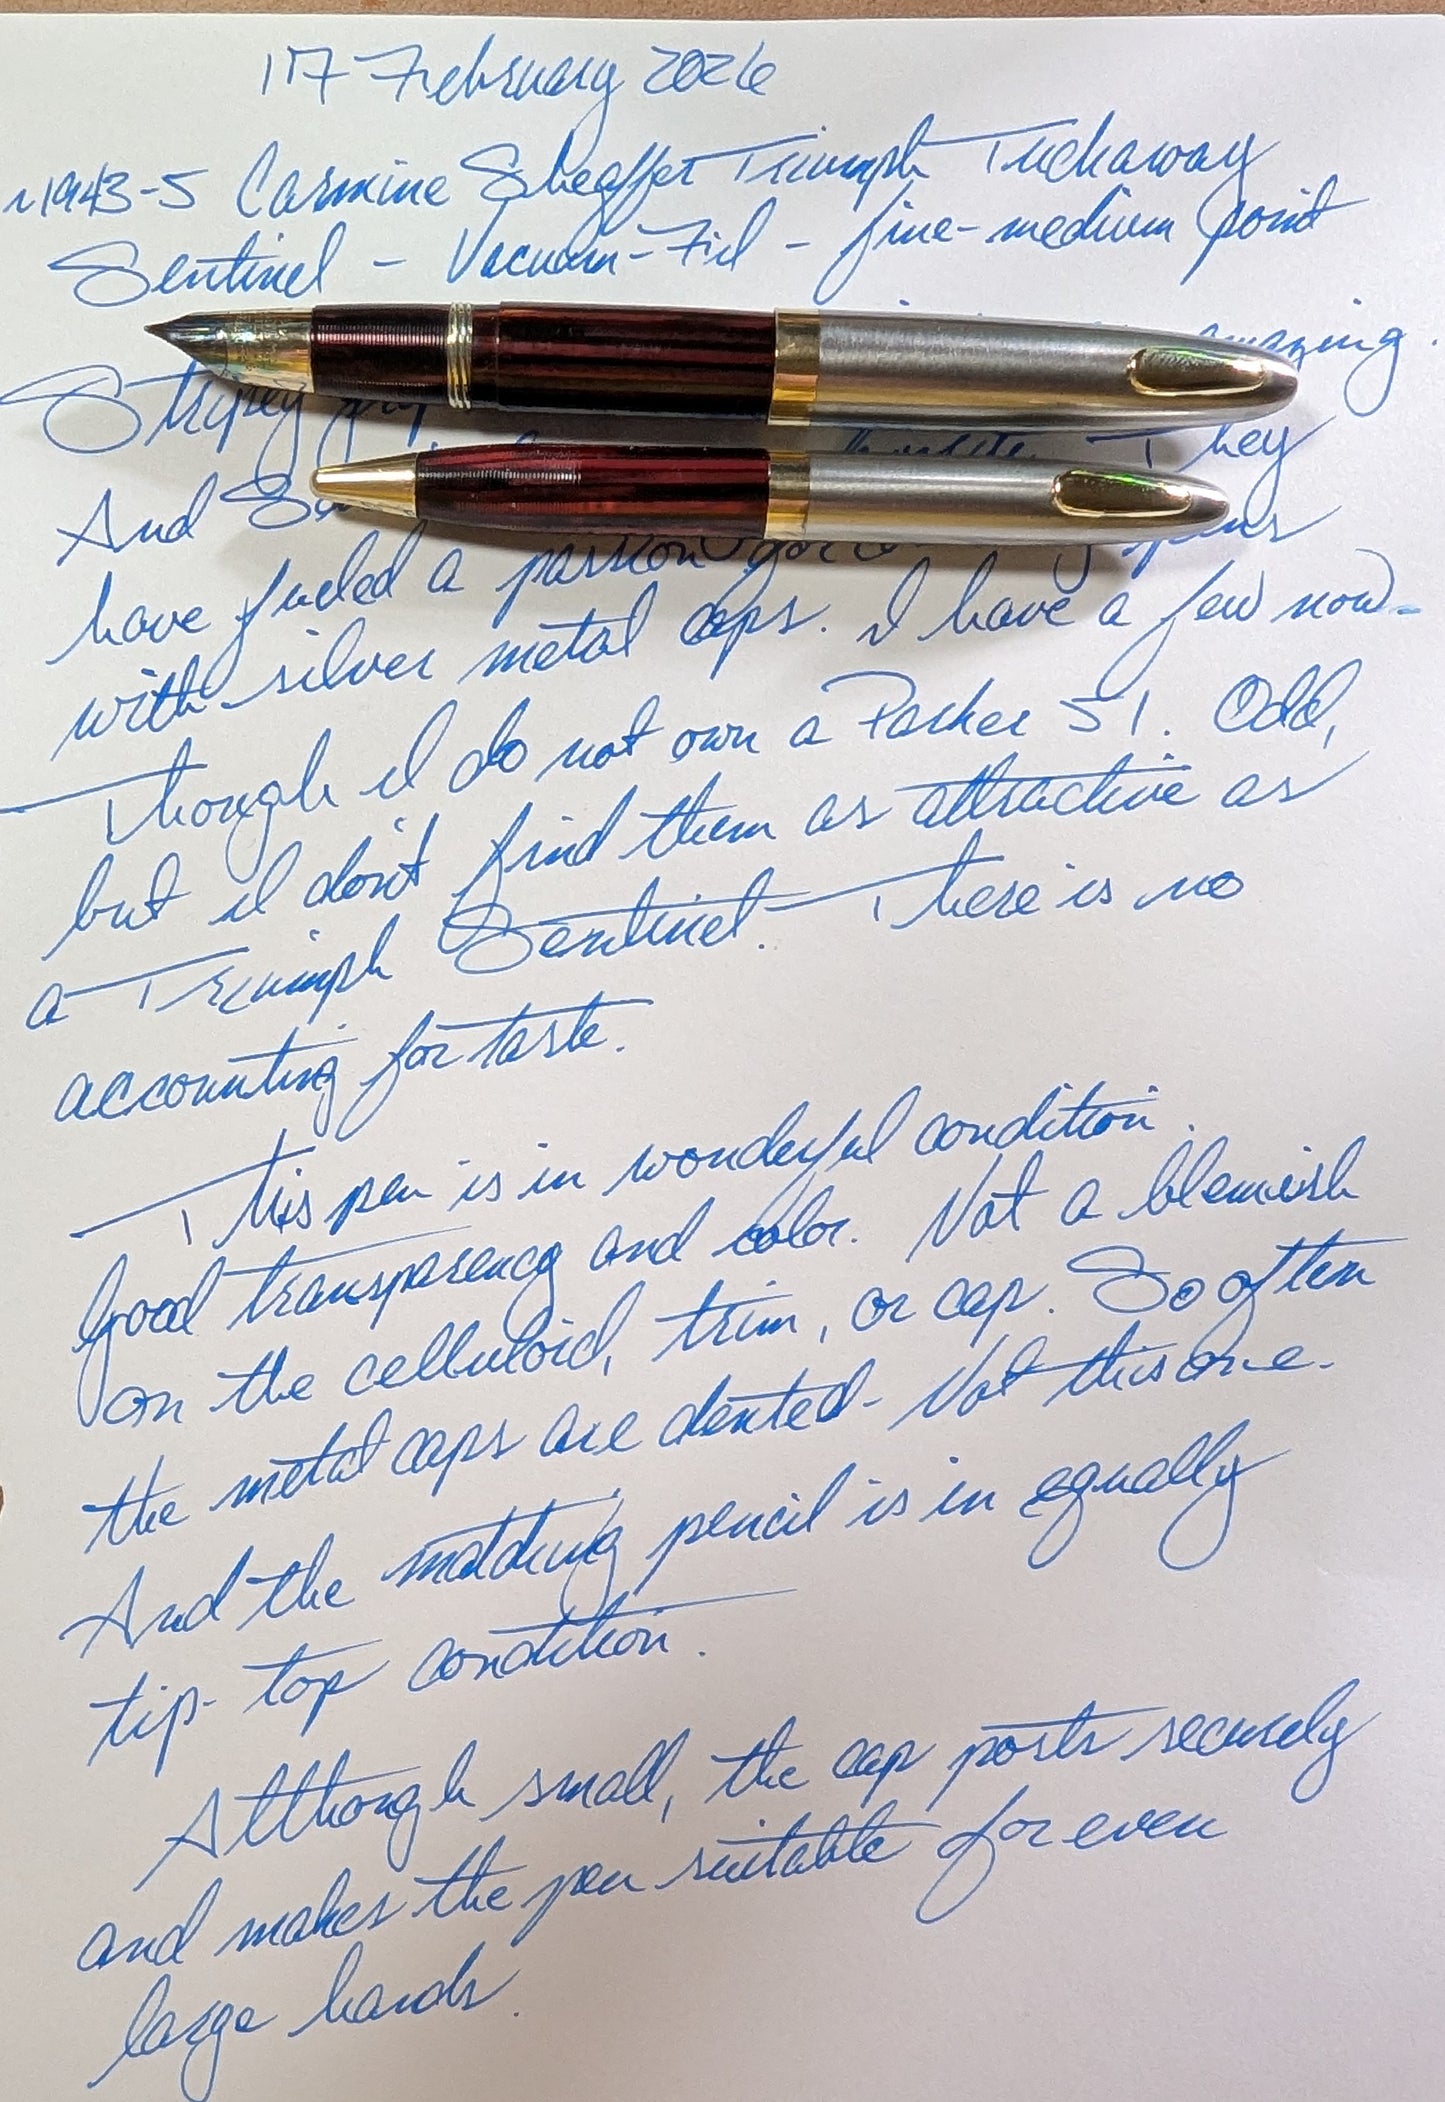 17 February 2026
~1943-5 Carmine Sheaffer Triumph Tuckaway
Sentinel - Vacuum-Fil - fine-medium point
Stripey
And They
have fueled a passion for pens
with silver metal caps. I have a few now-
Though I do not own a Parker 51. Odd,
but I don't find them as attractive as
a Triumph Sentinel. There is no
accounting for taste.
This pen is in wonderful condition.
Good transparency and color. Not a blemish
on the celluloid, trim, or cap. So often
the metal caps are dented- Not this one.
And the matching pencil is in equally
tip-top condition.
Although small, the cap posts securely
and makes the pen suitable for even
large hands.